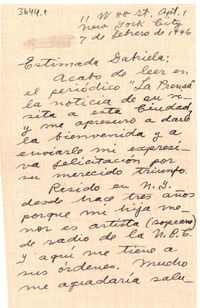 3644.1
11 W 88 St. Apt. 1
New York City
7 de febrero de 1946
Estimada Gabriela:
Acabo de leer en
el periódico "La Prensa"
la noticia de su vi-
sita a esta Ciudad,
y me apresuro a darle
la bienvenida y a
enviarle mi expresi-
va felicitación por
su merecido triunfo.
Resido en N.Y.
desde hace tres años
porque mi hija me-
nor es artista (soprano)
de radio de la N.B.C.
y aquí me tiene a
sus órdenes. Mucho
me agradaría salu-